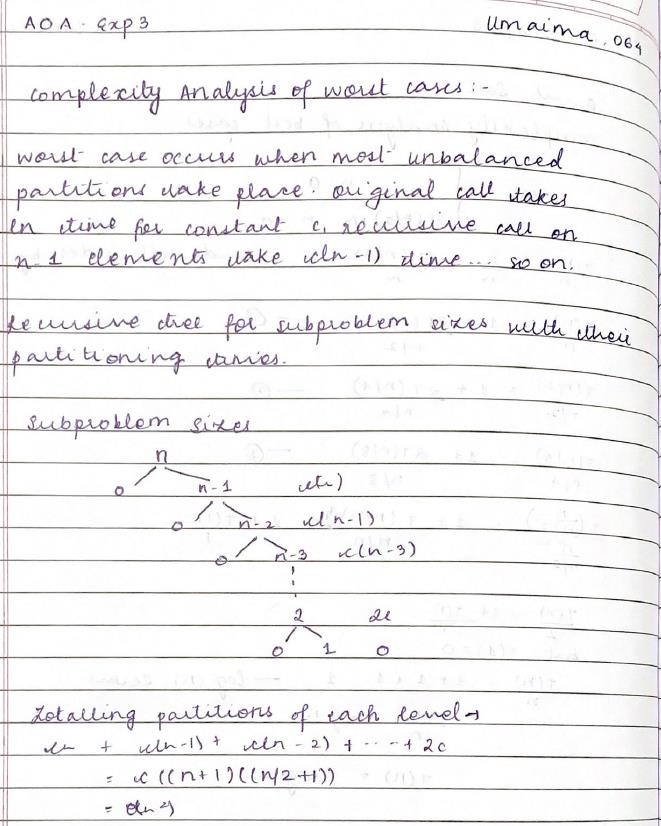 AOA - Exp 3
Umaima, 064
Complexity Analysis of worst cases :-
worst case occurs when most unbalanced
partitions take place. original call takes
cn time for constant c, recursive call on
n-1 elements take c(n-1) time... so on.
Recursive tree for subproblem sizes with their
partitioning times.
Subproblem sizes
n
0 n-1 c(n)
0 n-2 c(n-1)
0 n-3 c(n-3)
2 2c
0 1 0
Totalling partitions of each level →
cn + c(n-1) + c(n-2) + ---- + 2c
= c ((n+1)((n/2+1))